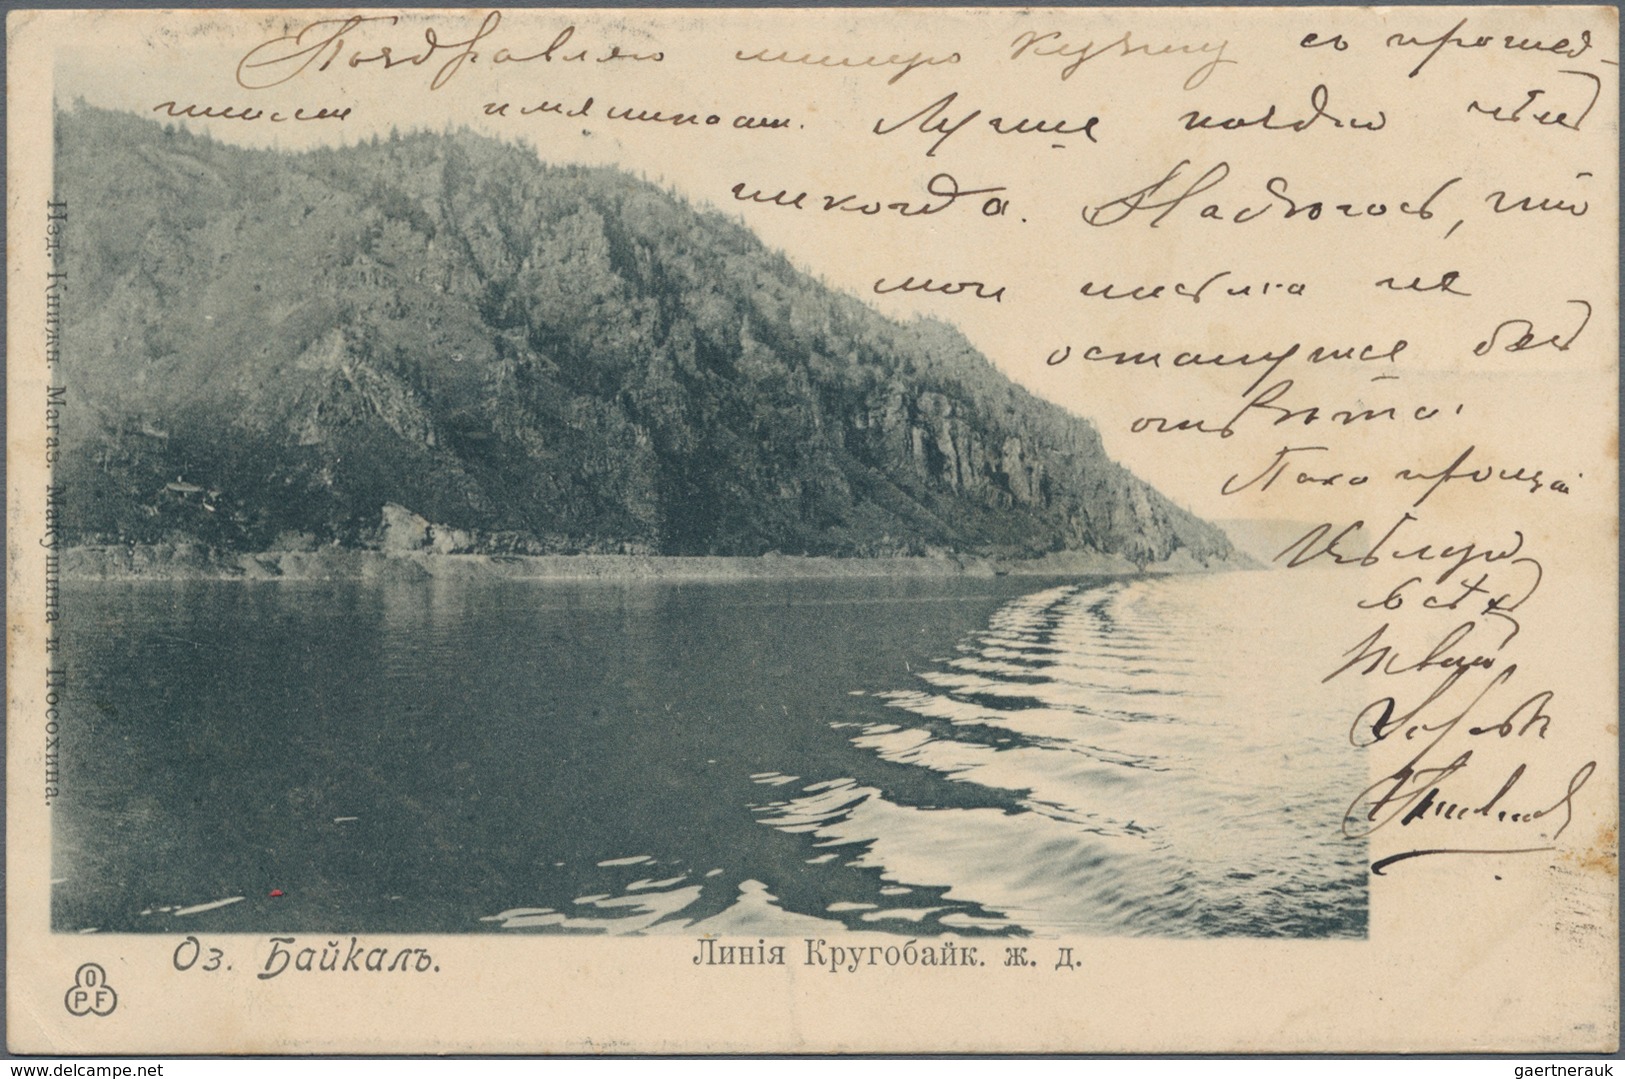 Поздравляю милую кузину съ прошед-
шими имянинами. Лучше поздно чѣмъ
никогда. Надѣюсь, что
мои письма не
останутся безъ
отвѣта.
Пока прощай
Цѣлую
всѣхъ
твой
Изд. Книжн. Магаз. Макушина и Посохина.
Оз. Байкалъ.
Линія Кругобайк. ж. д.
O
P F
www.delcampe.net
gaertnerauk